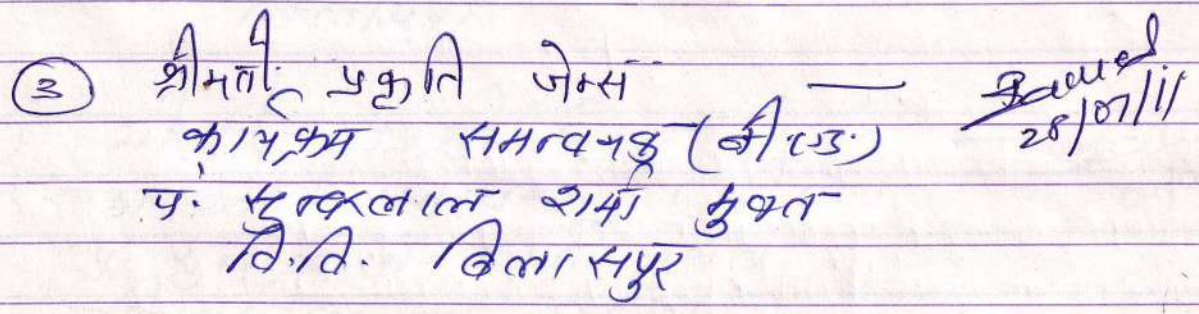 ③ श्रीमती प्रकृति जेम्स —
28/07/11
कार्यक्रम समन्वयक (बी.एड.)
पं. सुन्दरलाल शर्मा मुक्त
वि.वि. बिलासपुर